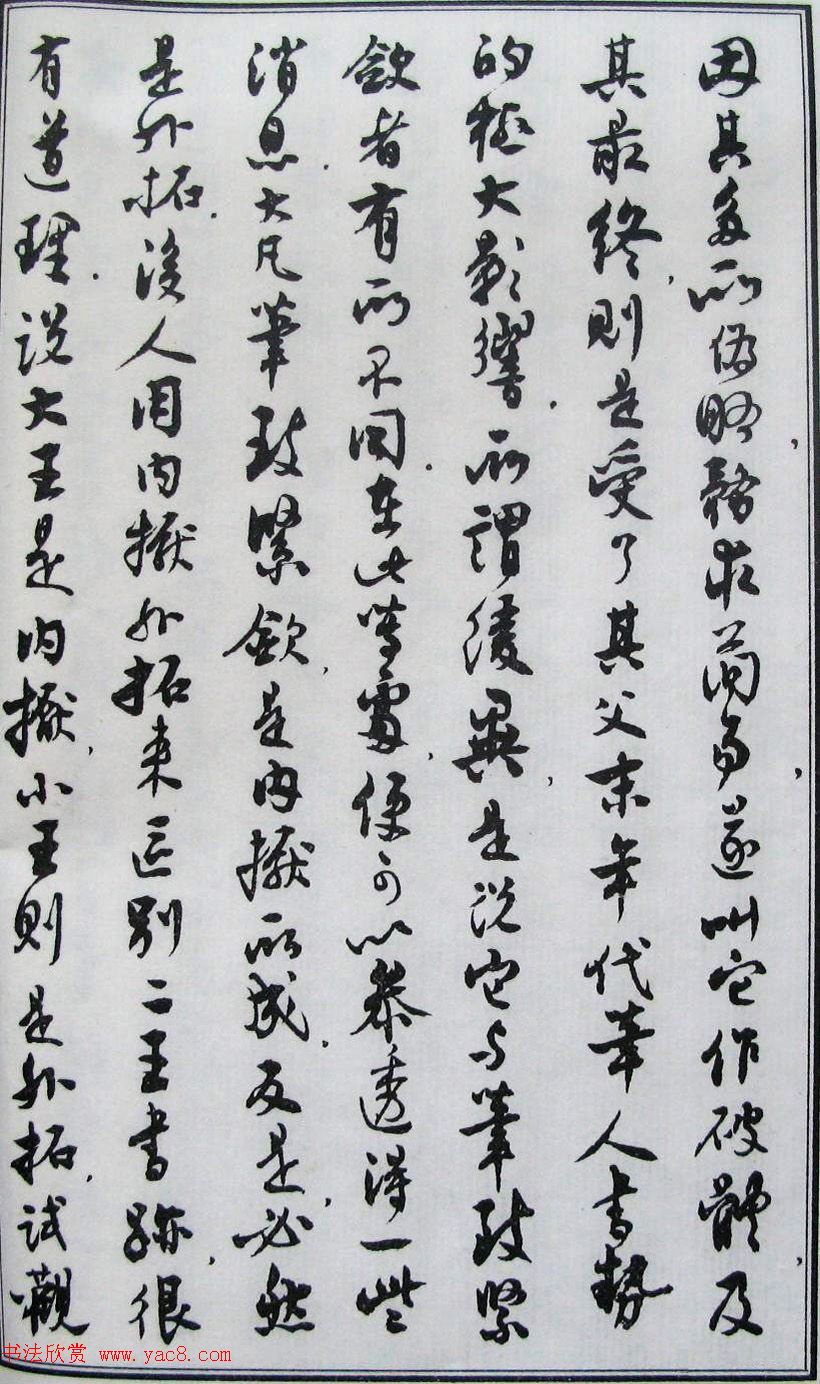 因其多所偽略，務求簡易，遂叫它作破體，及
其最終，則是受了其父末年代筆人書勢
的極大影響。所謂緩異，是说它与筆致緊
斂者有所不同。在此等處，便可以參透得一些
消息。大凡筆致緊斂，是内擫所成。反是，必然
是外拓。後人用内擫外拓来区别二王書跡，很
有道理。说大王是内擫，小王則是外拓，试觀
书法欣赏 www.yac8.com